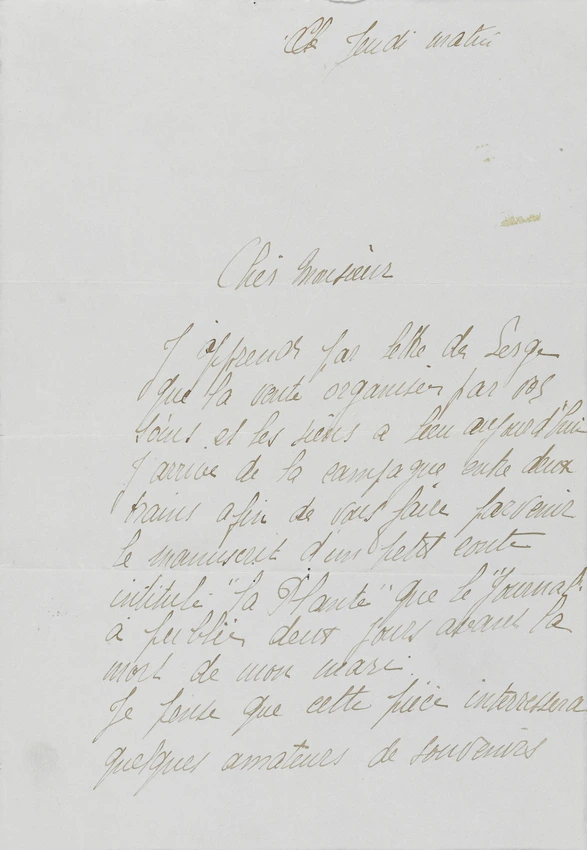 Ce Jeudi matin
Cher Monsieur
J'apprends par lettre de Serge
que la vente organisée par vos
soins et les siens a lieu aujourd'hui
J'arrive de la campagne entre deux
trains afin de vous faire parvenir
le manuscrit d'un petit conte
intitulé "La Plante" que le "Journal"
à publié deux jours avant la
mort de mon mari.
Je pense que cette pièce interressera
quelques amateurs de souvenirs